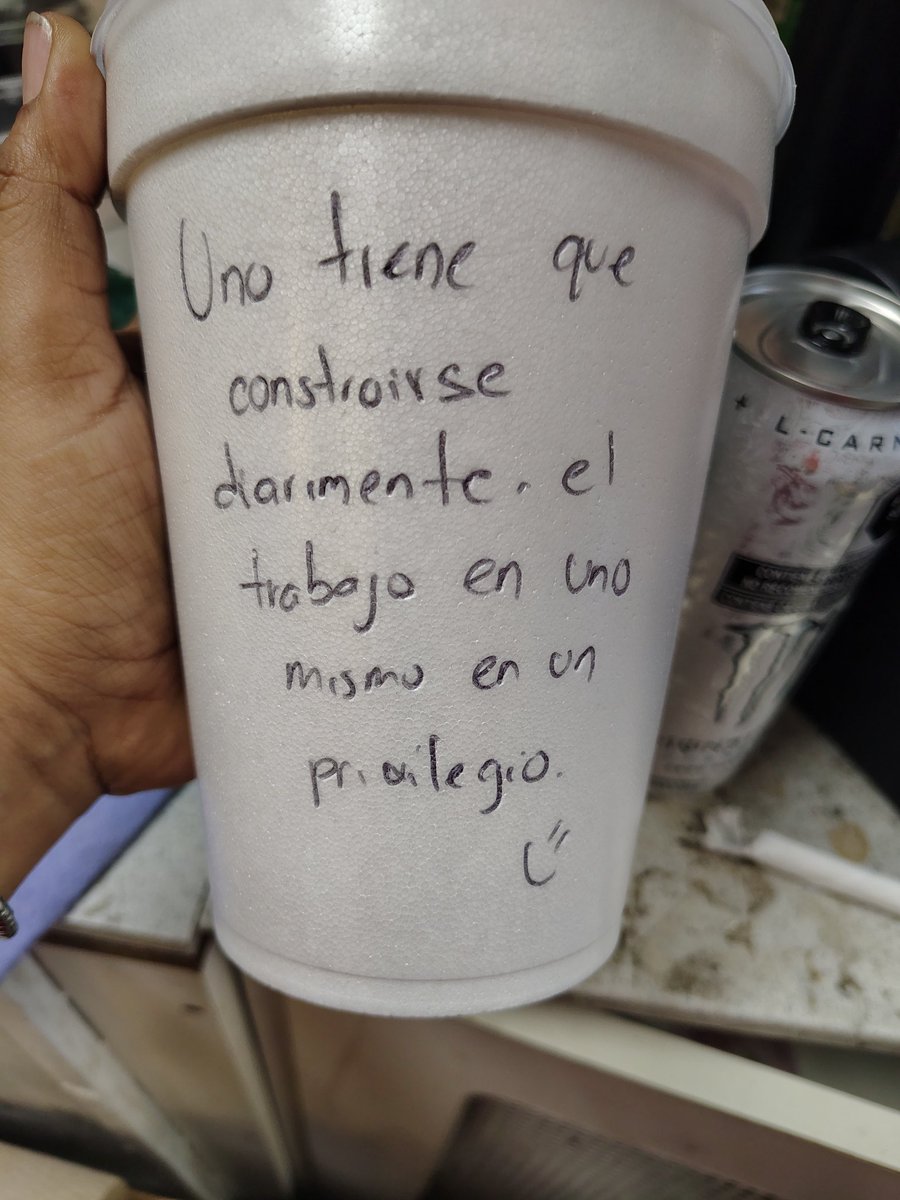 Uno tiene que
construirse
diarimente. el
trabajo en uno
mismo en un
privilegio.
L-CARN